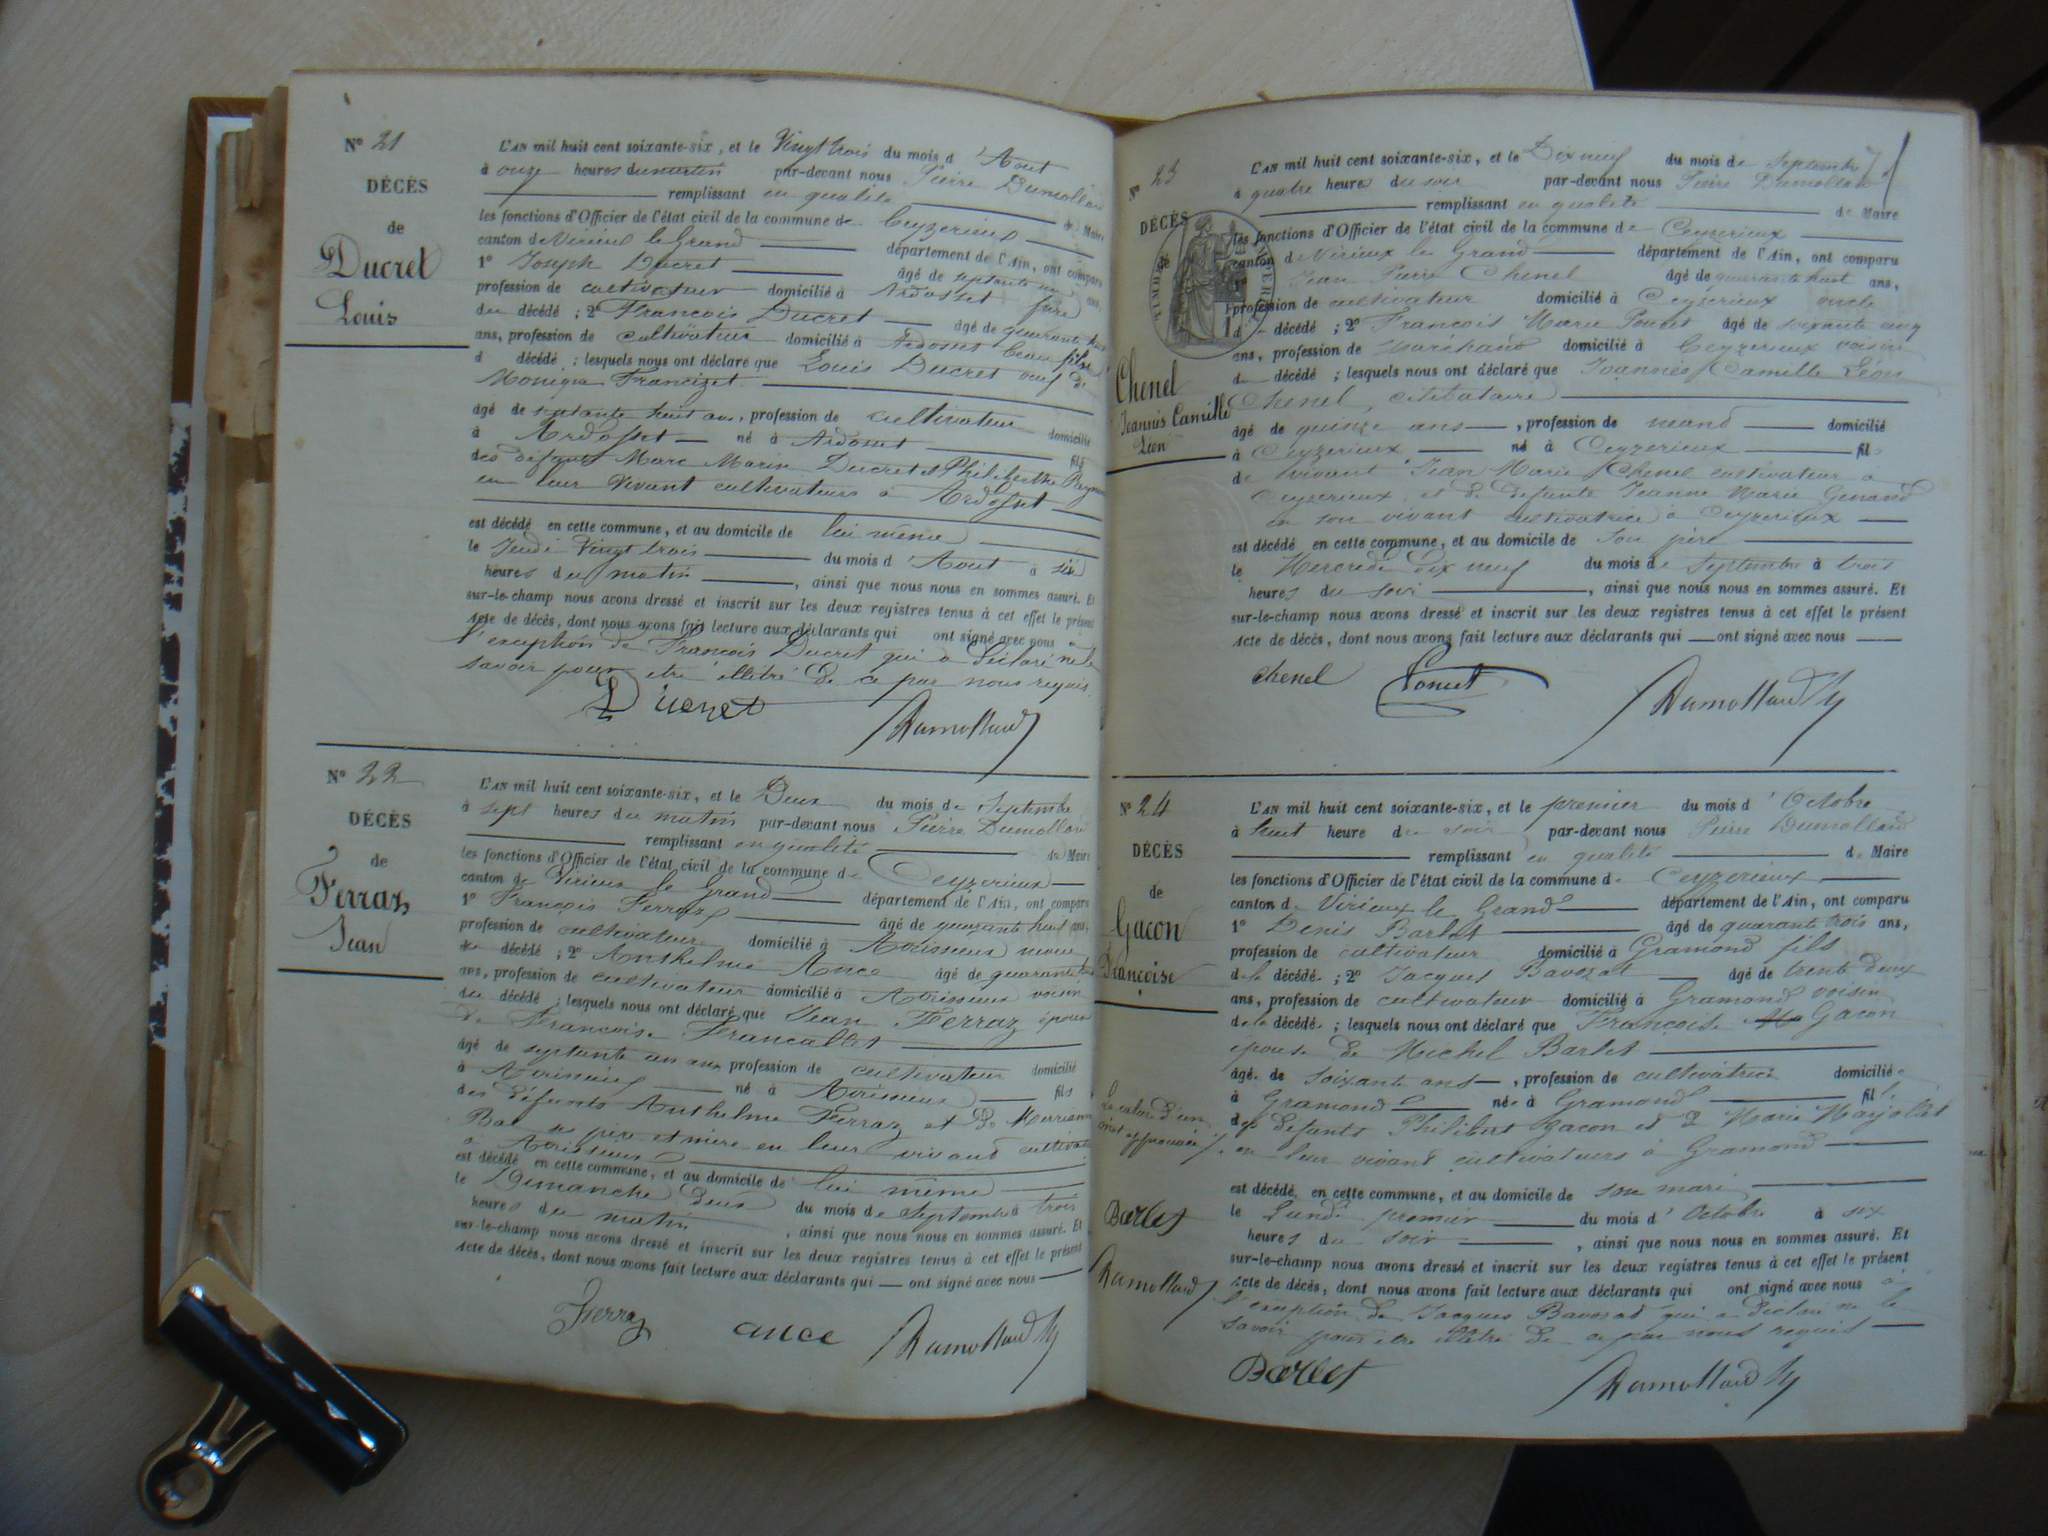 Nº 21
DÉCÈS
de
Ducret
Louis
L'AN mil huit cent soixante-six, et le Vingt trois du mois d'Aout
à onze heures du matin par-devant nous Pierre Dumollard
remplissant en qualité de Maire
les fonctions d'Officier de l'état civil de la commune de Ceyzerieux
canton de Virieux le Grand département de l'Ain, ont comparu
1º Joseph Ducret âgé de septante un ans,
profession de cultivateur domicilié à Ardosset frère
du décédé ; 2º François Ducret âgé de quarante huit
ans, profession de cultivateur domicilié à Ardosset beau fils
d décédé ; lesquels nous ont déclaré que Louis Ducret veuf de
Monique Francizet
âgé de septante huit ans, profession de cultivateur domicilié
à Ardosset né à Ardosset fils
des défunts Marc Marin Ducret et Philiberthe
en leur vivant cultivateurs à Ardosset
est décédé en cette commune, et au domicile de lui même
le Jeudi vingt trois du mois d'Aout à six
heures du matin, ainsi que nous nous en sommes assuré. Et
sur-le-champ nous avons dressé et inscrit sur les deux registres tenus à cet effet le présent
Acte de décès, dont nous avons fait lecture aux déclarants qui ont signé avec nous à
l'exception de François Ducret qui a déclaré ne le
savoir pour etre illétré de ce par nous requis.
Ducret Dumollard
Nº 22
DÉCÈS
de
Ferraz
Jean
L'AN mil huit cent soixante-six, et le Deux du mois de Septembre
à sept heures du matin par-devant nous Pierre Dumollard
remplissant en qualité de Maire
les fonctions d'Officier de l'état civil de la commune de Ceyzerieux
canton de Virieux le Grand département de l'Ain, ont comparu
1º François Ferraz âgé de quarante huit ans,
profession de cultivateur domicilié à Avrissieux neveu
du décédé ; 2º Anthelme Ance âgé de quarante
ans, profession de cultivateur domicilié à Avrissieux voisin
du décédé ; lesquels nous ont déclaré que Jean Ferraz époux
de Françoise Francallet
âgé de septante un ans profession de cultivateur domicilié
à Avrissieux né à Avrissieux fils
des défunts Anthelme Ferraz et
père et mère en leur vivand
à Avrissieux
est décédé en cette commune, et au domicile de lui même
le Dimanche deux du mois de Septembre à trois
heures du matin, ainsi que nous nous en sommes assuré. Et
sur-le-champ nous avons dressé et inscrit sur les deux registres tenus à cet effet le présent
Acte de décès, dont nous avons fait lecture aux déclarants qui ont signé avec nous
Ferraz ance Dumollard
Nº 23
DÉCÈS
de
TIMBRE IMPERIAL
Chenel
Joannès Camille
Léon
L'AN mil huit cent soixante-six, et le Dix neuf du mois de Septembre
à quatre heures du soir par-devant nous Pierre Dumollard
remplissant en qualité de Maire
les fonctions d'Officier de l'état civil de la commune de Ceyzerieux
canton de Virieux le Grand département de l'Ain, ont comparu
1º Jean Pierre Chenel âgé de quarante huit ans,
profession de cultivateur domicilié à Ceyzerieux oncle
d décédé ; 2º François Marie Poncet âgé de soixante cinq
ans, profession de marechand domicilié à Ceyzerieux voisin
d décédé ; lesquels nous ont déclaré que Joannès Camille Léon
Chenel, célibataire
âgé de quinze ans, profession de néand domicilié
à Ceyzerieux né à Ceyzerieux fils
de vivant Jean Marie Chenel cultivateur à
Ceyzerieux et de défunte Jeanne Marie
en son vivant cultivatrice à Ceyzerieux
est décédé en cette commune, et au domicile de son père
le Mercredi dix neuf du mois de Septembre à trois
heures du soir, ainsi que nous nous en sommes assuré. Et
sur-le-champ nous avons dressé et inscrit sur les deux registres tenus à cet effet le présent
Acte de décès, dont nous avons fait lecture aux déclarants qui ont signé avec nous
chenel Poncet Dumollard
Nº 24
DÉCÈS
de
Gacon
Françoise
L'AN mil huit cent soixante-six, et le premier du mois d'Octobre
à huit heure du soir par-devant nous Pierre Dumollard
remplissant en qualité de Maire
les fonctions d'Officier de l'état civil de la commune de Ceyzerieux
canton de Virieux le Grand département de l'Ain, ont comparu
1º Denis Barlet âgé de quarante trois ans,
profession de cultivateur domicilié à Gramond fils
de la décédé. ; 2º Jacques Bavozat âgé de trente deux
ans, profession de cultivateur domicilié à Gramond voisin
de la décédé. ; lesquels nous ont déclaré que Françoise Gacon
épouse de Michel Barlet
âgé. de soixante ans, profession de cultivatrice domicilié.
à Gramond née à Gramond fil.
des défunts Philibert Gacon et Marie
en leur vivant cultivateurs à Gramond
est décédé. en cette commune, et au domicile de son mari
le Lundi premier du mois d'Octobre à six
heures du soir, ainsi que nous nous en sommes assuré. Et
sur-le-champ nous avons dressé et inscrit sur les deux registres tenus à cet effet le présent
Acte de décès, dont nous avons fait lecture aux déclarants qui ont signé avec nous à
l'exception de Jacques Bavozat qui a déclaré ne le
savoir pour etre illétré de ce par nous requis
Barlet Dumollard
d'un
mot approuvée
Barlet
Dumollard